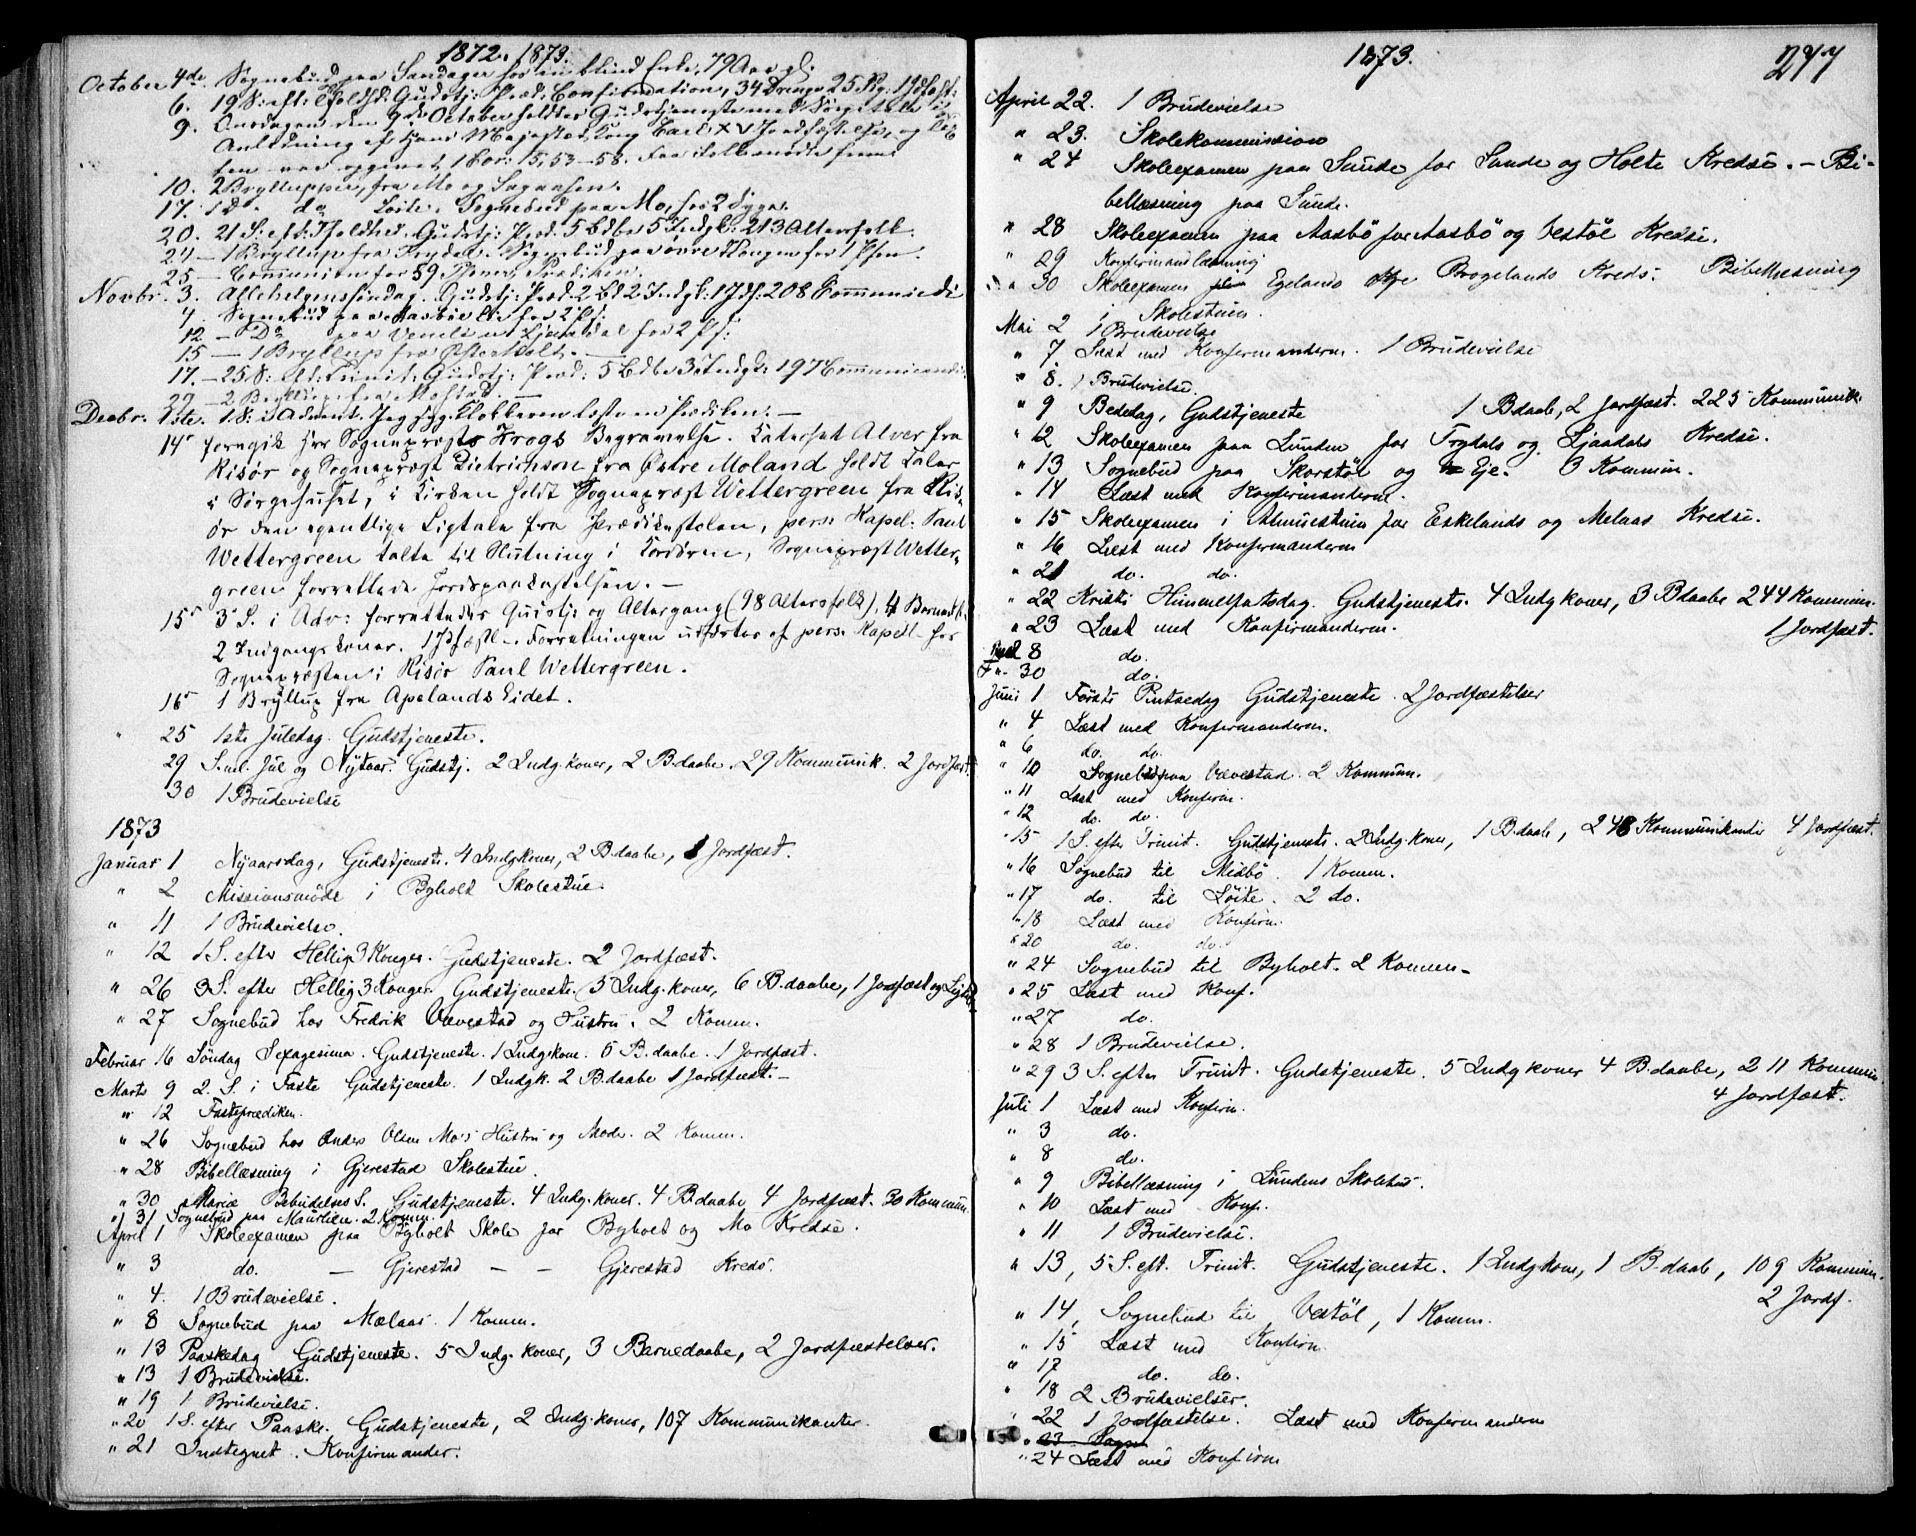 1872. 1873.
October 4de. Sognebud paa Sandager hos en blind Enke, 79 Aar gl.
6. 19 S: eft: Gudstj: Præd: Confirmation, 34 Drenge 25 Pig.
9. Onsdagen den 9de October holdtes Gudstjeneste med Sørgetale i
Anledning af Hans Majestæt Kong Carl XV Jordfæstelse, og
ten var opgivet, 1 Cor: 15, 53-58.
10. 2 Brylluper, fra Mo og
17. 1 D. do Løite. Sognebud paa Mo, hos 2 Syge.
20. 21 S: eft: Gudstj: Præd: 5 Bdbe 5 Indgk: 213 Altersfolk.
24 — 1 Bryllup fra Trydal. Sognebud paa øvre for 1 Psn.
25 — Communion for 59 Præken.
Novbr. 3. Allehelgenssøndag. Gudstj: Præd. 2 Bd 2 Indgk: 1 Jdf: 208 Communicd
4. Sognebud paa Aasbø hos 2 Ps:
12 — Do paa hos 2 Ps:
15 — 1 Bryllup fra Østerholt. —
17. — 25 S: eft: Trinit: Gudstj: Præd: 5 Bdbe 3 Indgk: 197 Communicand:
29 — 2 Bryllup fra
Decbr. 1ste. 1 S: i Advent. Jeg syg. Klokkeren læste en Præken. —
14de foregik Hr Sognepræst Krogs Begravelse. Catechet Alver fra
Risør og Sognepræst Dietrichson fra Østre Moland holdt Taler
i Sørgehuset, i Kirken holdt Sognepræst Wettergreen fra Ris-
ør den egentlige Ligtale fra Prædikestolen, pers: Kapel. Paul
Wettergreen talte til Slutning i Kordøren, Sognepræst Wetter-
green forrettede Jordspaakastelsen. —
15de 3 S. i Adv: forrettedes Gudstj: og Altergang (98 Altersfolk), 4 Barnedb.
2 Indgangskoner. 1 Jdfæst. — Forretningen udførtes af pers: Kapell. hos
Sognepræsten i Risør Paul Wettergreen.
16de 1 Bryllup fra Apelands Eidet.
" 25 1ste Juledag. Gudstjeneste.
29 S. ml. Jul og Nytaar. Gudstj. 2 Indg.koner, 2 B.daabe. 29 Kommunik. 2 Jordfæst.
30 1 Brudevielse
1873
Januar 1 Nyaarsdag, Gudstjeneste. 4 Indgkoner, 2 B.daabe, 1 Jordfæst.
" 2 Missionsmøde i Byholt Skolestue.
" 11 1 Brudevielse.
" 12 1 S. efter Hellig 3 Konger. Gudstjeneste. 2 Jordfæst.
" 26 3 S. efter Hellig 3 Konger. Gudstjeneste. 5 Indg.koner, 6 B.daabe, 1 Jordfæst og Ligtale
" 27 Sognebud hos Fredrik Vævestad og Hustru. 2 Komm.
Februar 16 Søndag Sexagesima. Gudstjeneste. 1 Indgkone. 6 B.daabe. 1 Jordfæst.
Marts 9 2. S. i Faste Gudstjeneste. 1 Indgk. 2 B.daabe 1 Jordfæst. —
" 12 Fasteprædiken.
" 26 Sognebud hos Anders Olsen Mo's Hustru og Moder. 2 Komm.
" 28 Bibellæsning i Gjerestad Skolestue.
" 30 Mariæ Bebudelses S. Gudstjeneste. 4 Indg.koner. 4 B.daabe 4 Jordfæst. 30 Kommun.
" 31, Sognebud paa Maurlien. 2 Komm.
April 1 Skoleexamen paa Byholt Skole for Byholt og Mo Kredse.
" 3 do. — Gjerestad — — Gjerestad Kreds.
" 4. 1 Brudevielse.
" 8 Sognebud paa Mælaas. 1 Komm.
" 13 Paaskedag Gudstjeneste. 5 Indg.koner, 3 Barnedaabe, 2 Jordfæstelser.
" 13 1 Brudevielse.
" 19 1 Brudevielse.
" 20 1 S. efter Paaske. Gudstjeneste, 2 Indg.koner, 107 Kommunikanter.
" 21 Indtegnet Konfirmander.
1873.
277
April 22. 1 Brudevielse
" 23. Skolekommission
" 24 Skoleexamen paa Sunde for Sunde og Holte Kredse. — Bi-
bellæsning paa Sunde.
" 28 Skoleexamen paa Aasbö for Aasbö og Vestöl Kredse.
" 29 Konfirmandlæsning
" 30 Skoleexamen Egelands Brogelands Kreds. Bibellæsning
i Skolestuen.
Mai 2 1 Brudevielse
" 7 Læst med Konfirmanderne. 1 Brudevielse
" 8. 1 Brudevielse.
" 9 Bededag, Gudstjeneste 1 B.daab, 2 Jordfæst. 225 Kommunik.
" 12 Skoleexamen paa Lunden for Trydals og Ljaadals Kredse.
" 13 Sognebud paa Skorstöl og Eje. 3 Kommun.
" 14 Læst med Konfirmanderne.
" 15 Skoleexamen i Almuestuen for Eskelands og Melaas Kredse.
" 16 Læst med Konfirmanderne
" 21 do. do.
" 22 Kristi Himmelfartsdag. Gudstjeneste. 4 Indg.koner, 3 B.daabe 244 Kommun.
1 Jordfæst.
" 23 Læst med Konfirmanderne.
28 do.
" 30 do.
Juni 1 Første Pintsedag Gudstjeneste. 2 Jordfæstelser
" 4 Læst med Konfirmanderne.
" 6 do. do.
" 10 Sognebud paa Vævestad. 2 Kommun.
" 11 Læst med Konfirm.
" 12 do. do.
" 15 1 S. efter Trinit. Gudstjeneste. 2 Indg.koner, 1 B.daab, 248 Kommunikanter 4 Jordfæst.
" 16 Sognebud til Midbö. 1 Komm.
" 17 do. til Löite. 2 do.
" 18 Læst med Konfirm.
" 20 do. do.
" 24 Sognebud til Byholt. 2 Komm.
" 25 Læst med Konf.
" 27 do.
" 28 1 Brudevielse.
" 29 3 S. efter Trinit. Gudstjeneste. 5 Indgkoner 4 B.daabe, 211 Kommun.
4 Jordfæst.
Juli 1 Læst med Konfirm.
" 3 do.
" 8 do.
" 9 Bibellæsning i Lundens Skolehus.
" 10 Læst med Konf.
" 11 1 Brudevielse.
" 13, 5 S. eft. Trinit. Gudstjeneste. 1 Indgkone, 1 B.daab, 109 Kommun.
2 Jordf.
" 14, Sognebud til Vestöl, 1 Komm.
" 15 Læst med Konfirm
" 17 do. do.
" 18 2 Brudevielser.
" 22 1 Jordfæstelse. Læst med Konfirmanderne
" 23 Sogne
" 24 Læst med Konfirm